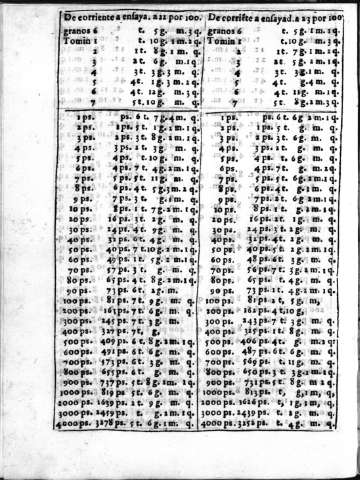 De corriente a ensaya. a 22 por 100.
granos 6 t. 5 g. m. 3 q.
Tomin 1 t. 10 g. 1 m. 2 q.
2 1 t. 8 g. 1 m. q.
3 2 t. 6 g. m. 1 q.
4 3 t. 3 g. 3 m. q.
5 4 t. g. 4 m. q.
6 4 t. 12 g. m. 3 q.
7 5 t. 10 g. m. q.
1 ps. ps. 6 t. 7 g. 4 m. q.
2 ps. 1 ps. 5 t. 1 g. 2 m. 1 q.
3 ps. 2 ps. 3 t. 8 g. 2 m. 1 q.
4 ps. 3 ps. 2 t. 3 g. m. q.
5 ps. 4 ps. t. 10 g. m. q.
6 ps. 4 ps. 7 t. 4 g. 2 m. 1 q.
7 ps. 5 ps. 5 t. 11 g. m. q.
8 ps. 6 ps. 4 t. 5 g. 3 m. 2 q.
9 ps. 7 ps. 3 t. g. 1 m. q.
10 ps. 8 ps. 1 t. 7 g. 2 m. 1 q.
20 ps. 16 ps. 3 t. 2 g. m. q.
30 ps. 24 ps. 4 t. 9 g. m. q.
40 ps. 32 ps. 6 t. 4 g. m. q.
50 ps. 40 ps. 7 t. 10 g. 2 m. 1 q.
60 ps. 49 ps. 1 t. 5 g. 2 m. 1 q.
70 ps. 57 ps. 3 t. g. m. q.
80 ps. 65 ps. 4 t. 8 g. 2 m. 1 q.
90 ps. 73 ps. 6 t. 2 g. m.
100 ps. 81 ps. 7 t. 9 g. m. q.
200 ps. 163 ps. 7 t. 6 g. m. q.
300 ps. 245 ps. 7 t. 3 g. m.
400 ps. 327 ps. 7 t. g.
500 ps. 409 ps. 6 t. 8 g. 2 m. 1 q.
600 ps. 491 ps. 6 t. 6 g. m. q.
700 ps. 573 ps. 6 t. 3 g. m. q.
800 ps. 655 ps. 6 t. g. m. q.
900 ps. 737 ps. 5 t. 8 g. 2 m. 2 q.
1000 ps. 819 ps. 5 t. 6 g. m. q.
2000 ps. 1639 ps. 2 t. 9 g. m. q.
3000 ps. 2459 ps. t. g. 2 m. 1 q.
4000 ps. 3278 ps. 5 t. 6 g. 1 m. q.
De corriẽte a ensayad. a 23 por 100
granos 6 t. 5 g. 1 m. 1 q.
Tomin 1 t. 10 g. m. 3 q.
2 1 t. 7 g. 2 m. q.
3 2 t. 5 g. 1 m. q.
4 3 t. 3 g. m. q.
5 4 t. g. 3 m. 1 q.
6 4 t. 12 g. m. q.
7 5 t. 8 g. 2 m. 3 q.
1 ps. ps. 6 t. 6 g. 2 m. 1 q.
2 ps. 1 ps. 5 t. g. 2 m. 1 q.
3 ps. 2 ps. 3 t. 6 g. m. q.
4 ps. 3 ps. 2 t. g. 1 m. q.
5 ps. 4 ps. t. 6 g. m. q.
6 ps. 4 ps. 7 t. g. m. q.
7 ps. 5 ps. 5 t. 6 g. 2 m. 1 q.
8 ps. 6 ps. 4 t. g. 2 m. 1 q.
9 ps. 7 ps. 2 t. 6 g. 1 m. 1 q.
10 ps. 8 ps. 1 t. g. 2 m. q.
20 ps. 16 ps. 2 t. 1 g. m. q.
30 ps. 24 ps. 3 t. 1 g. m. q.
40 ps. 32 ps. 4 t. 2 g. m. q.
50 ps. 40 ps. 5 t. 2 g. 2 m. 1 q.
60 ps. 48 ps. 6 t. 3 g. m. q.
70 ps. 56 ps. 7 t. 3 g. 2 m. 1 q.
80 ps. 65 ps. t. 4 g. m. q.
90 ps. 73 ps. 1 t. 4 g. 2 m. 1 q.
100 ps. 81 ps. 2 t. 5 g. m,
200 ps. 162 ps. 4 t. 10 g,
300 ps. 243 ps. 7 t. 3 g. m. q.
400 ps. 325 ps. 1 t. 8 g. m. q.
500 ps. 406 ps. 4 t. g. m. 2 q.
600 ps. 487 ps. 6 t. 6 g. m. q.
700 ps. 569 ps. t. 11 g. m. q.
800 ps. 650 ps. 3 t. 3 g. 2 m. 1 q.
900 ps. 731 ps. 5 t. 8 g. m. 2 q.
1000 ps. 813 ps. t, g, 1 m, q,
2000 ps. 1626 ps, t, 1 g, 3 m, q,
3000 ps. 2439 ps. t. 2 g. m. q.
4000 ps. 3252 ps. t. 4 g. m. q.